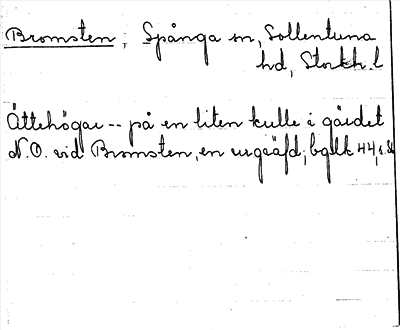 Bromsten, Spånga sn, Sollentuna
hd, Stockh. l
Ättehögar -- på en liten kulle i gärdet
N.O. vid Bromsten, en urgräfd; bglk 44, s.